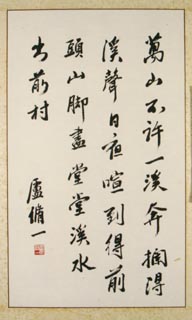 萬山不許一溪奔攔得
溪聲日夜喧到得前
頭山脚盡堂堂溪水
出前村
盧脩一